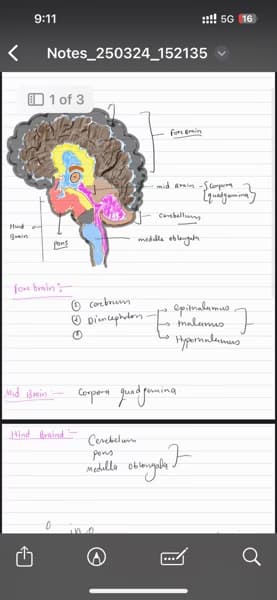 9:11
5G 16
Notes_250324_152135
1 of 3
Fore brain
mid Brain - Corpora quadgemina
Cerebellum
medulla oblongata
Hind Brain
Pons
Fore brain :-
① Cerebrum
② Diencephalon
③
epithalamus
thalamus
Hypothalamus
Mid Brain :- Corpora quadgemina
Hind Braind :-
Cerebelum
Pons
Medulla Oblongata